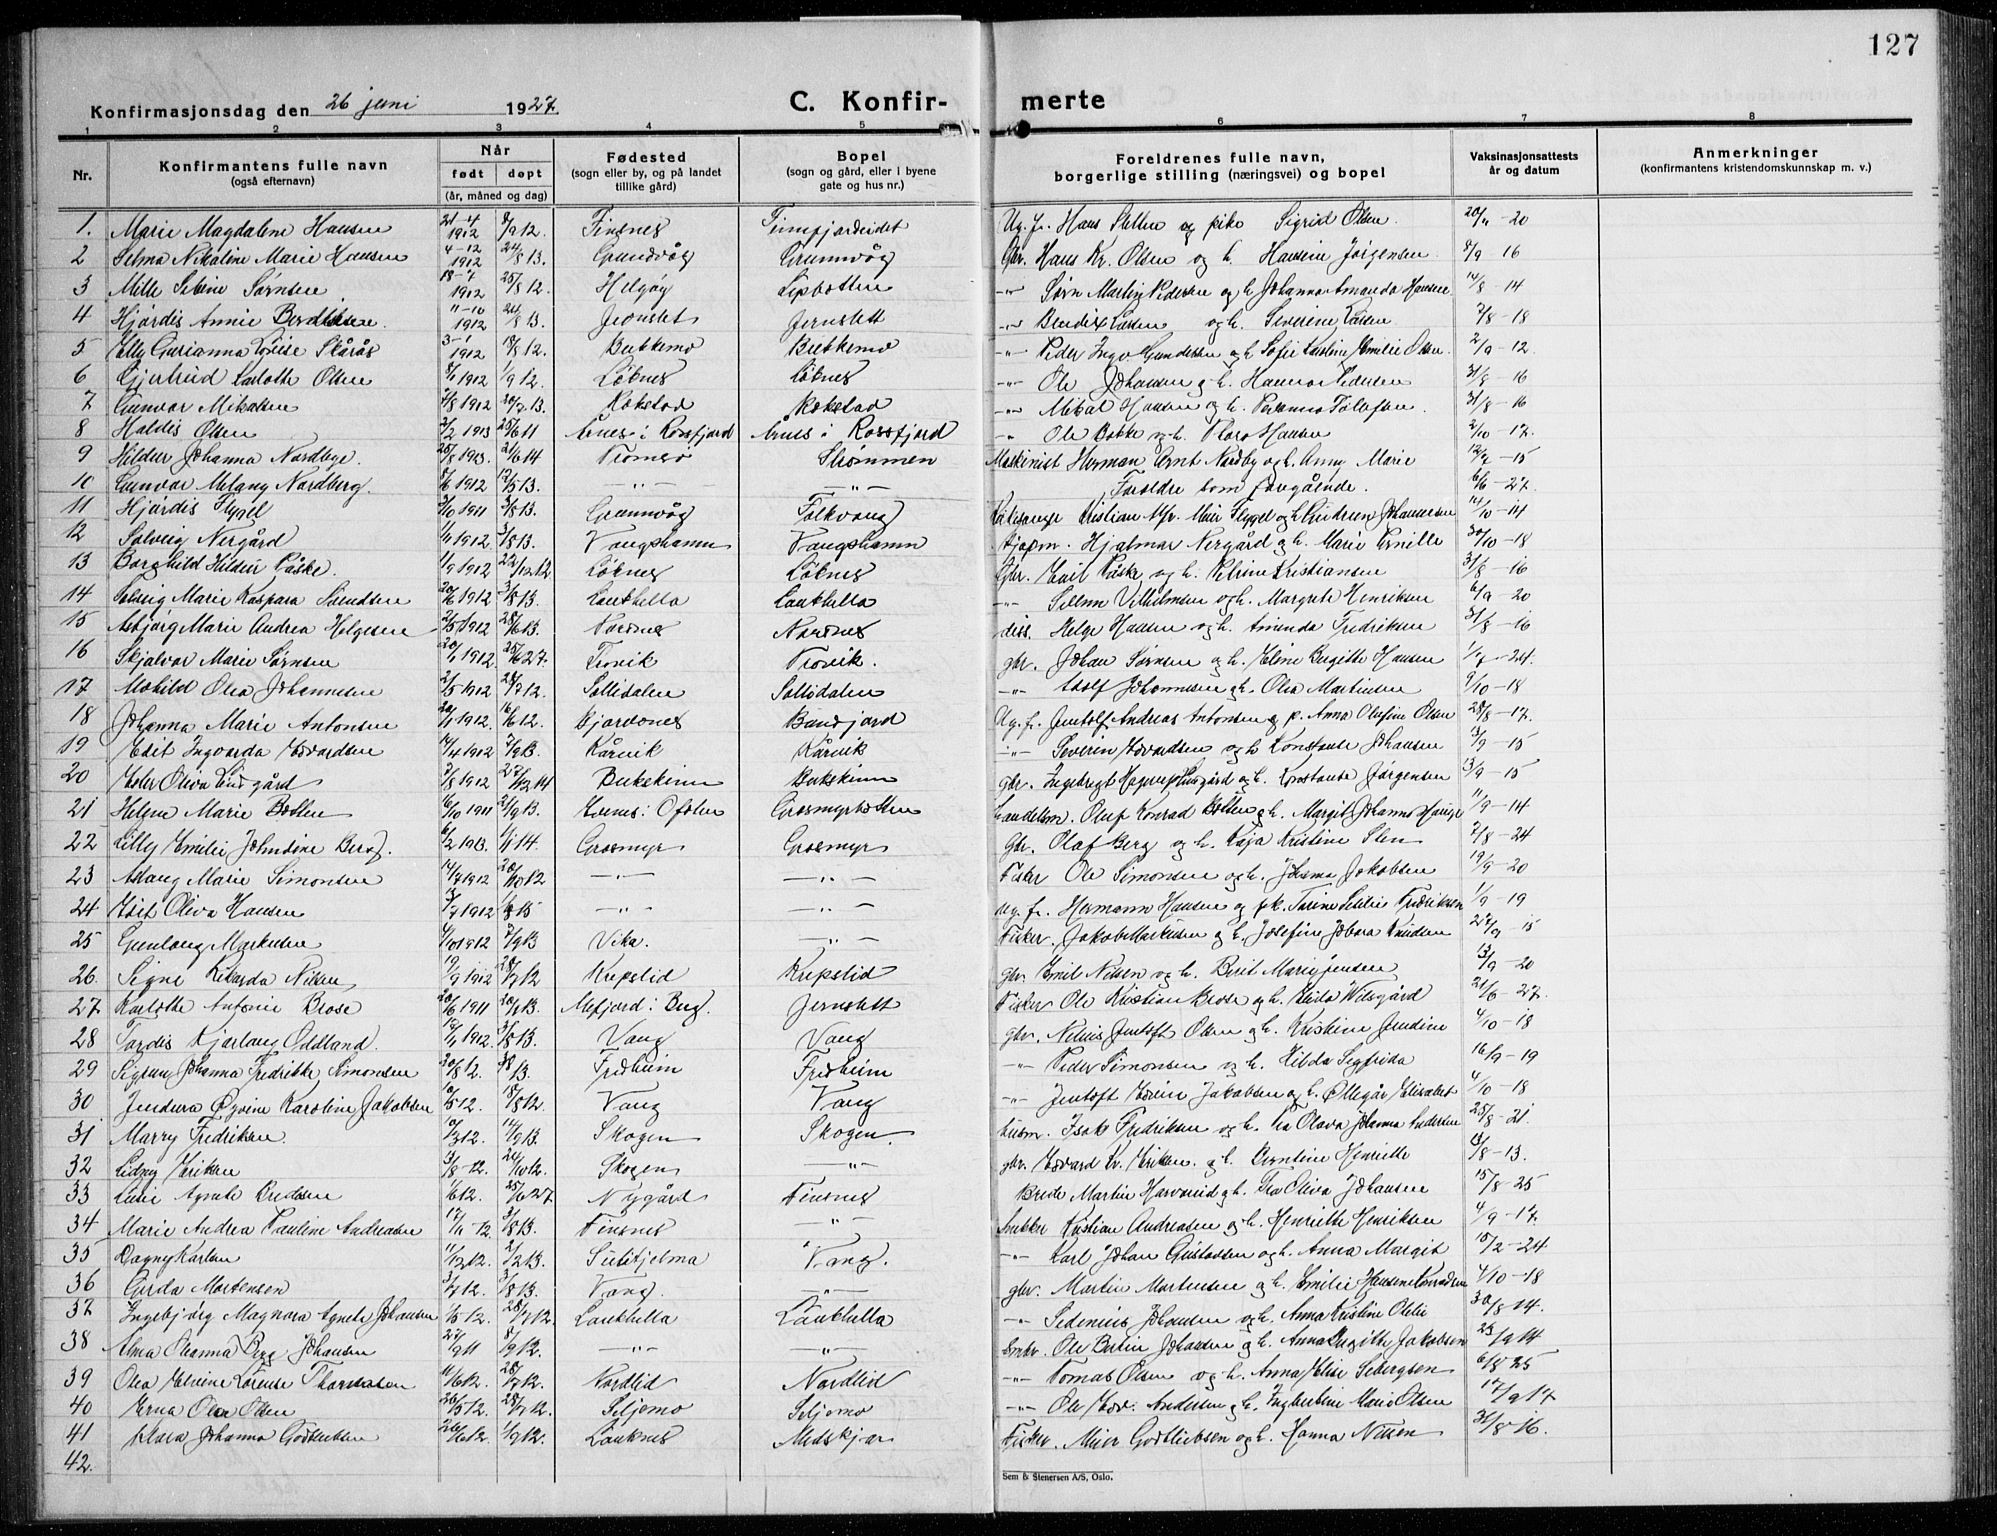 127
Konfirmasjonsdag den 26 juni 1927
C. Konfirmerte
1 2 3 4 5 6 7 8
Nr. Konfirmantens fulle navn (også efternavn) Når født døpt (år, måned og dag) Fødested (sogn eller by, og på landet tillike gård) Bopel (sogn og gård, eller i byene gate og hus nr.) Foreldrenes fulle navn, borgerlige stilling (næringsvei) og bopel Vaksinasjonsattests år og datum Anmerkninger (konfirmantens kristendomskunnskap m. v.)
1. Marie Magdalene Hansen 21-4 1912 8/9 12 Finsnes Finnfjordeidet Ug. fr. Hans Sletten og pike Sigrid Olsen 20/11 - 20
2 Selma Nikoline Marie Hansen 4-12 1912 24/8 13. Grundvåg Grunnvåg Gbr. Hans Kr. Olsen og h. Hansine Jørgensen 8/9 16
3 Mille Sørnsen 18-7 1912 25/8 12. Helgøy Lysbotten -"- Sørn Martin Pedersen og h. Johanna Amanda Hansen 14/8 - 14
4 Hjørdis Annie Bendiksen 11-10 1912 24/8 13. Jernslet Jernslett -"- og h. Severine 7/8 - 18
5 Louise Skårås 3-1 1912 18/8 12. Bukkemo Bukkemo -"- Peder Ingv. Gundersen og h. Sofie Emilie Olsen 2/9 - 12
6 Gjertrud Olsen 8/1 1912 1/9 12. Løknes Løknes -"- Ole Johansen og h. Hanna Pedersen 31/8 - 16
7 Gunvor Mikalsen 7/8 1912 20/7 13. Røkstad Røkstad -"- Mikal Hansen og h. 31/8 - 16
8 Haldis Olsen 2/2 1913 Årnes i Rossfjord Årnes i Rossfjord -"- Ole Bakke og h. Hansen 2/10 - 17.
9 Hildur Johanna Nordbye 1913. 21/6 14 Tromsø Strømmen Maskinist Herman Arnt Nordby og h. Anny Marie 12/7 - 15
10 Gunvor Melany Nordberg. 8/6 1912 12/5 13. -"- -"- Foreldre som foregående. 6/6 - 27
11 Hjørdis Flygel 3/10 1911 3/8 13. Grunnvåg Folkvang Kristian Flygel og h. Gudrun Johannesen 14/10 - 14
12 Solveig Nergård 1/11 1912. 3/8 13. Vangshamn Vangshamn Hjalmar Nergård og h. Marie Pernille 30/10 - 18
13 Borghild Hildur Påske. 1/9 1912 22/12 12 Løknes Løknes Gbr. Emil Påske og h. Petrine Kristiansen 31/8 - 16
14 Solveig Marie Kaspara 20/6 1912 3/8 13. Laukhella Laukhella -"- Vilhelmsen og h. Margrete Henriksen 6/9 - 20
15 Asbjørg Marie Andrea Helgesen 2/5 1912 28/6 13. Nordnes Nordnes diss. Helge Hansen og h. Amanda Fredriksen 31/8 - 16
16 Skjalvor Marie Sørnsen 20/1 1912. 25/6 27. Trovik Trovik. gbr. Johan Sørnsen og h. Eline Bergitte Hansen 1/7 - 24.
17 Mathild Olea Johannesen 2/5 1912 28/7 12. Sollidalen Sollidalen -"- Adolf Johannesen og h. Olea Martinsen 9/10 - 18
18 Johanna Marie Antonsen 20/1 1912. 16/6 12. Gjøvdnes Bundjord Ug. f. Jentolf Andreas Antonsen og p. Anna Olufine Olsen 28/8 - 17.
19 Edit Ingvarda Edvardsen 14/4 1912 7/9 13. Kårvik Kårvik -"- Severin Edvardsen og h. Konstanse Johansen 13/9 - 15
20 Ester Oliva Lindgård 3/8 1912 27/12 14 Bukskinn Bukskinn gbr. Ingebrigt Lindgård og h. Konstanse Jørgensen 13/9 - 15
21 Helga Marie Botten 16/10 1911 21/9 13. Evenes i Ofoten Grasmyrbotten Handelsm. Oluf Konrad Botten og h. Margit Johanne 11/9 - 14
22 Lilly Emilie Johnsine Berg. 6/2 1913. 1/1 14. Grasmyr Grasmyr Gbr. Olaf Berg og h. Kaja Kristine Sten 7/8 - 24
23 Aslaug Marie Simonsen 14/7 1912 20/10 12 -"- -"- Fisker Ole Simonsen og h. Johanna Jakobsen 19/9 - 20
24 Edit Oliva Hansen 13/7 1912 -"- -"- ug. fr. Hermann Hansen og pk. Torine Fredriksen 1/9 - 19
25 Gunlaug Markusen 4/10 1912 7/9 13 Vika. -"- Fisker. Jakob Markusen og h. Josefine Knudsen 27/9 - 15
26 Signe Rikarda Nilsen 19/9 1912 28/7 12 Krepslid Krepslid gbr. Emil Nilsen og h. Berit Marie Jensen 13/9 - 20
27 Karlotte Antonie Brose 20/6 1911 20/7 13. Mefjord i Berg. Jernslett Fisker Ole Kristian Brose og h. Wilsgård 21/6 - 27.
28 Tordis Kjerlaug Oddland. 12/1 1912. 3/8 13. Vang Vang gbr. Nelius Jentoft Olsen og h. Kristine Jensine 4/10 - 18
29 Sigrun Johanna Fredrikke Simonsen 20/8 12. Fredheim Fredheim -"- Peder Simonsen og h. Hilda Segfrida 16/9 - 19
30 Jendura Øyvine Karoline Jakobsen 10/5 12. 18/8 12. Vang Vang -"- Jentoft Jakobsen og h. Ollegår Elisabet 4/10 - 18
31 Marry Fredriksen. 10/3 12. 14/9 13. Skogen Skogen. Isak Fredriksen og h. Olava Johanna Andersen 25/8 - 21.
32 Lidny Eriksen 13/8 - 12. 20/10 12. Skogen -"- gbr. Edvard Kr. Eriksen. og h. Berntine Henriette 13/8 - 13.
33 Agnete 1/6 12. 25/6 27. Nygård Finsnes Martin og h. Oliva Johansen 15/8 - 25
34 Marie Andrea Pauline Andreasen 17/11 - 12. 3/8 13. Finsnes -"- Snekker Kristian Andreasen og h. Henriette Henriksen 4/9 - 17.
35 Dagny Karlsen 11/12 12. 2/2 13. Sulitjelma Vang. -"- Karl Johan Gustavsen og h. Anna Margit 15/2 - 24
36 Gerda Mortensen 3/7 12. 3/8 13. Vang. -"- gbr. Martin Mortensen og h. Emilie Hansine Konradsen 4/10 - 18
37 Ingebjørg Magnora Agnete Johansen 1/5 12. 28/7 12. Laukhella Laukhella -"- Sedenius Johansen og h. Anna Kristine Oldie 30/8 14.
38 Alma Johanna Berg Johansen 27/9 11 8/9 12. -"- -"- Ole Johansen og h. Anna Birgitte Jakobsen 23/9 14
39 Olea Elvine Lorense Thomassen 11/6 12. 28/7 12. Nordlid Nordlid -"- Tomas Olsen og h. Anna Elise Sebergsen 6/8 25
40 Erna Olea Olsen 26/5 12. 28/7 12. Seljemo Seljemo -"- Ole Edv. Andersen og h. Ingbertine Marie Olsen 17/9 17
41 Klara Johanna Godtliebsen 26/6 12. 1/9 12. Lauknes Medskjær Fisker. Meier Godtliebsen og h. Hanna Nilsen 31/8 - 16.
42.
Sem & Stenersen A/S, Oslo.